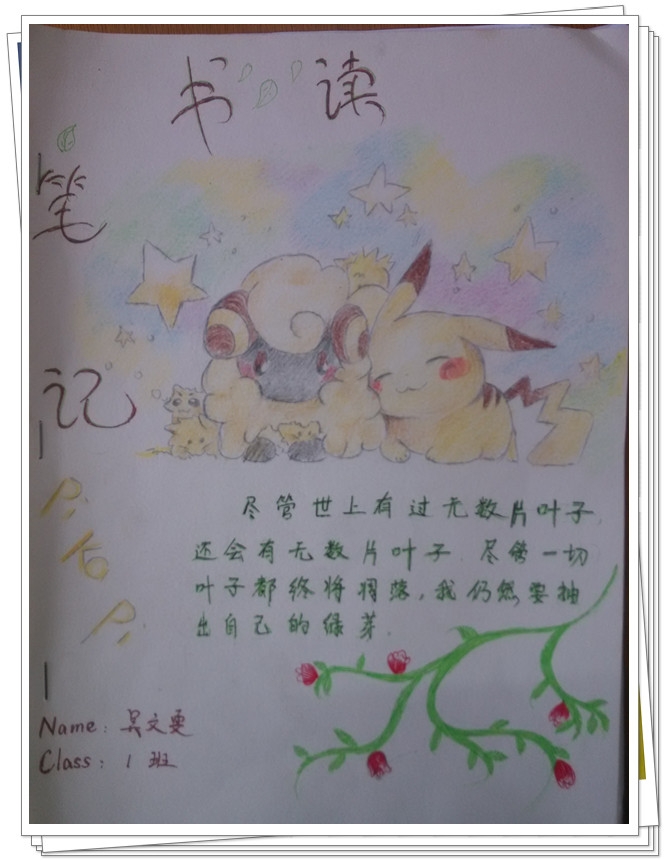 读书
笔
记
尽管世上有过无数片叶子,
还会有无数片叶子. 尽管一切
叶子都终将凋落,我仍然要抽
出自己的绿芽.
Name: 吴文雯
Class: 1 班